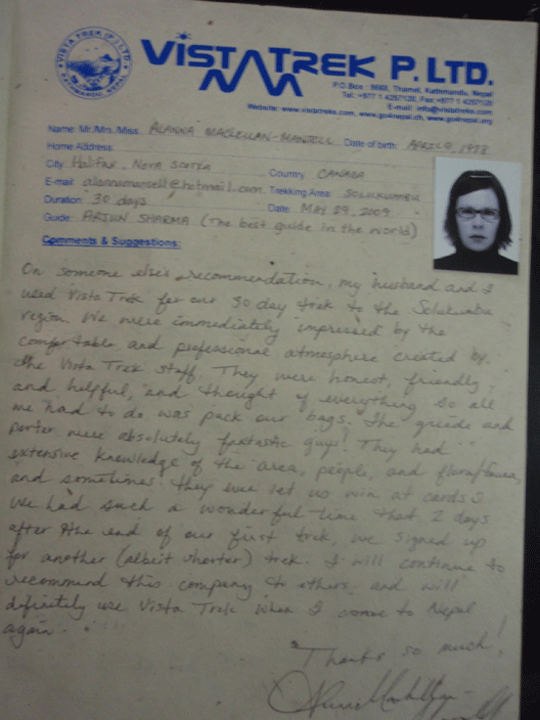 VISTA TREK (P.) LTD.
KATHMANDU, NEPAL
VISTA TREK P. LTD.
P.O.Box : Thamel, Kathmandu, Nepal
Tel: +977 1 4257126, Fax:+977 1 4257126
E-mail:
Website:
Name: Mr./Mrs./Miss. ALANNA MACLELLAN-MANSELL Date of birth: APRIL 9, 1978
Home Address:
City: Halifax, NOVA SCOTIA Country: CANADA
E-mail: alannamansell@hotmail.com Trekking Area: SOLUKUMBU
Duration: 30 days Date: MAY 29, 2009
Guide: ARJUN SHARMA (The best guide in the world)
Comments & Suggestions:
On someone else's recommendation, my husband and I
used Vista Trek for our 30 day trek to the Solukumbu
region. We were immediately impressed by the
comfortable and professional atmosphere created by
the Vista Trek staff. They were honest, friendly,
and helpful, and thought of everything so all
we had to do was pack our bags. The guide and
porter were absolutely fantastic guys! They had
extensive knowledge of the area, people, and flora/fauna,
and sometimes they even let us win at cards
We had such a wonderful time that 2 days
after the end of our first trek, we signed up
for another (albeit shorter) trek. I will continue to
recommend this company to others and will
definitely use Vista Trek when I come to Nepal
again.
Thanks so much!